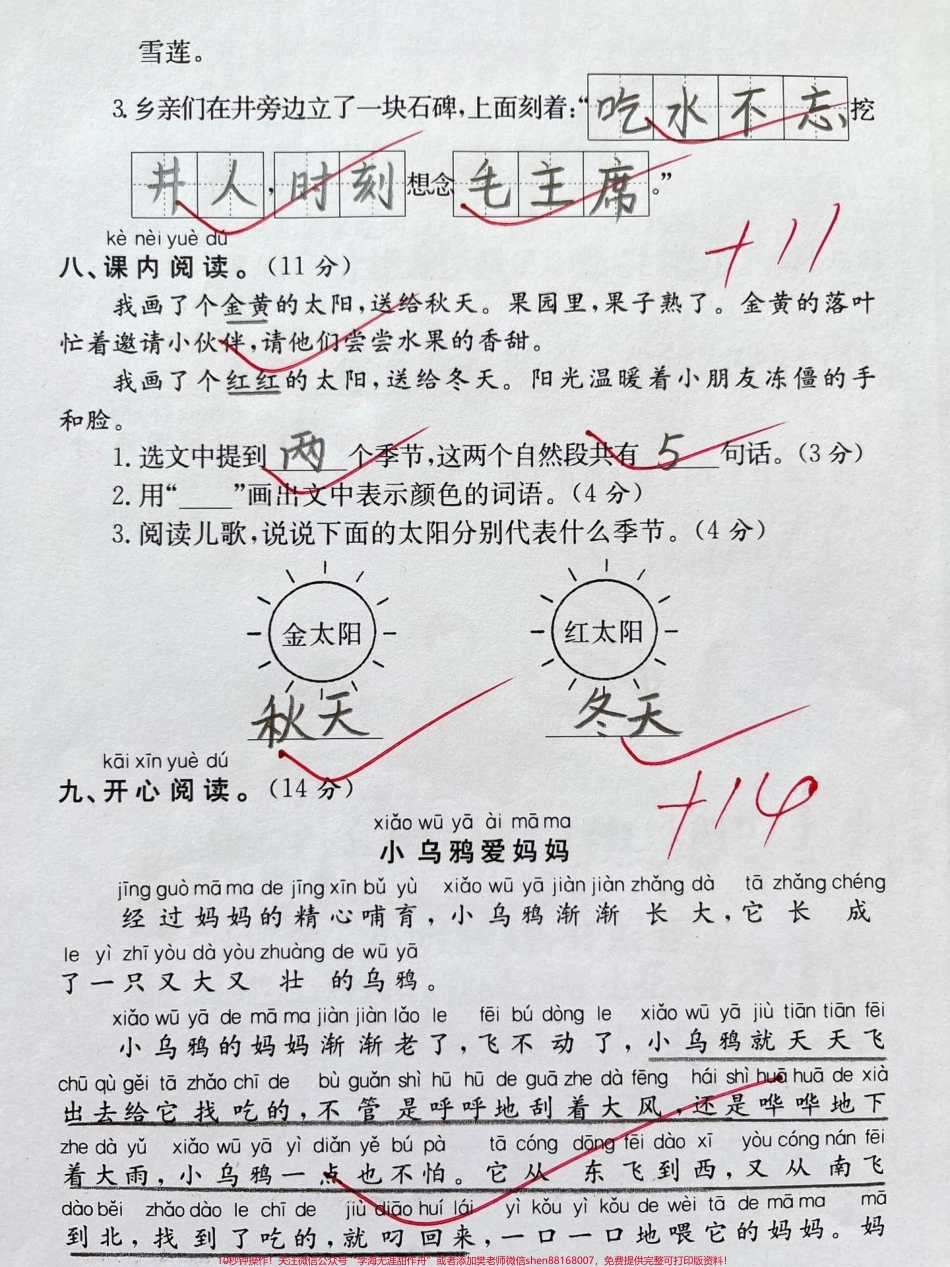 雪莲。
3.乡亲们在井旁边立了一块石碑,上面刻着:“吃水不忘挖
井人,时刻想念毛主席。”
+11
kè nèi yuè dú
八、课内阅读。(11分)
我画了个金黄的太阳,送给秋天。果园里,果子熟了。金黄的落叶
忙着邀请小伙伴,请他们尝尝水果的香甜。
我画了个红红的太阳,送给冬天。阳光温暖着小朋友冻僵的手
和脸。
1.选文中提到 两 个季节,这两个自然段共有 5 句话。(3分)
2.用“____”画出文中表示颜色的词语。(4分)
3.阅读儿歌,说说下面的太阳分别代表什么季节。(4分)
金太阳 红太阳
秋天 冬天
kāi xīn yuè dú
九、开心阅读。(14分)
+14
xiǎo wū yā ài mā ma
小乌鸦爱妈妈
jīng guò mā ma de jīng xīn bǔ yù xiǎo wū yā jiàn jiàn zhǎng dà tā zhǎng chéng
经过妈妈的精心哺育,小乌鸦渐渐长大,它长成
le yì zhī yòu dà yòu zhuàng de wū yā
了一只又大又壮的乌鸦。
xiǎo wū yā de mā ma jiàn jiàn lǎo le fēi bú dòng le xiǎo wū yā jiù tiān tiān fēi
小乌鸦的妈妈渐渐老了,飞不动了,小乌鸦就天天飞
chū qù gěi tā zhǎo chī de bù guǎn shì hū hū de guā zhe dà fēng hái shì huā huā de xià
出去给它找吃的,不管是呼呼地刮着大风,还是哗哗地下
zhe dà yǔ xiǎo wū yā yì diǎn yě bú pà tā cóng dōng fēi dào xī yòu cóng nán fēi
着大雨,小乌鸦一点也不怕。它从东飞到西,又从南飞
dào běi zhǎo dào le chī de jiù diāo huí lái yì kǒu yì kǒu de wèi tā de mā ma mā
到北,找到了吃的,就叼回来,一口一口地喂它的妈妈。妈
10秒钟操作!关注微信公众号“学海无涯甜作舟”或者添加樊老师微信shen88168007,免费提供完整可打印版资料!